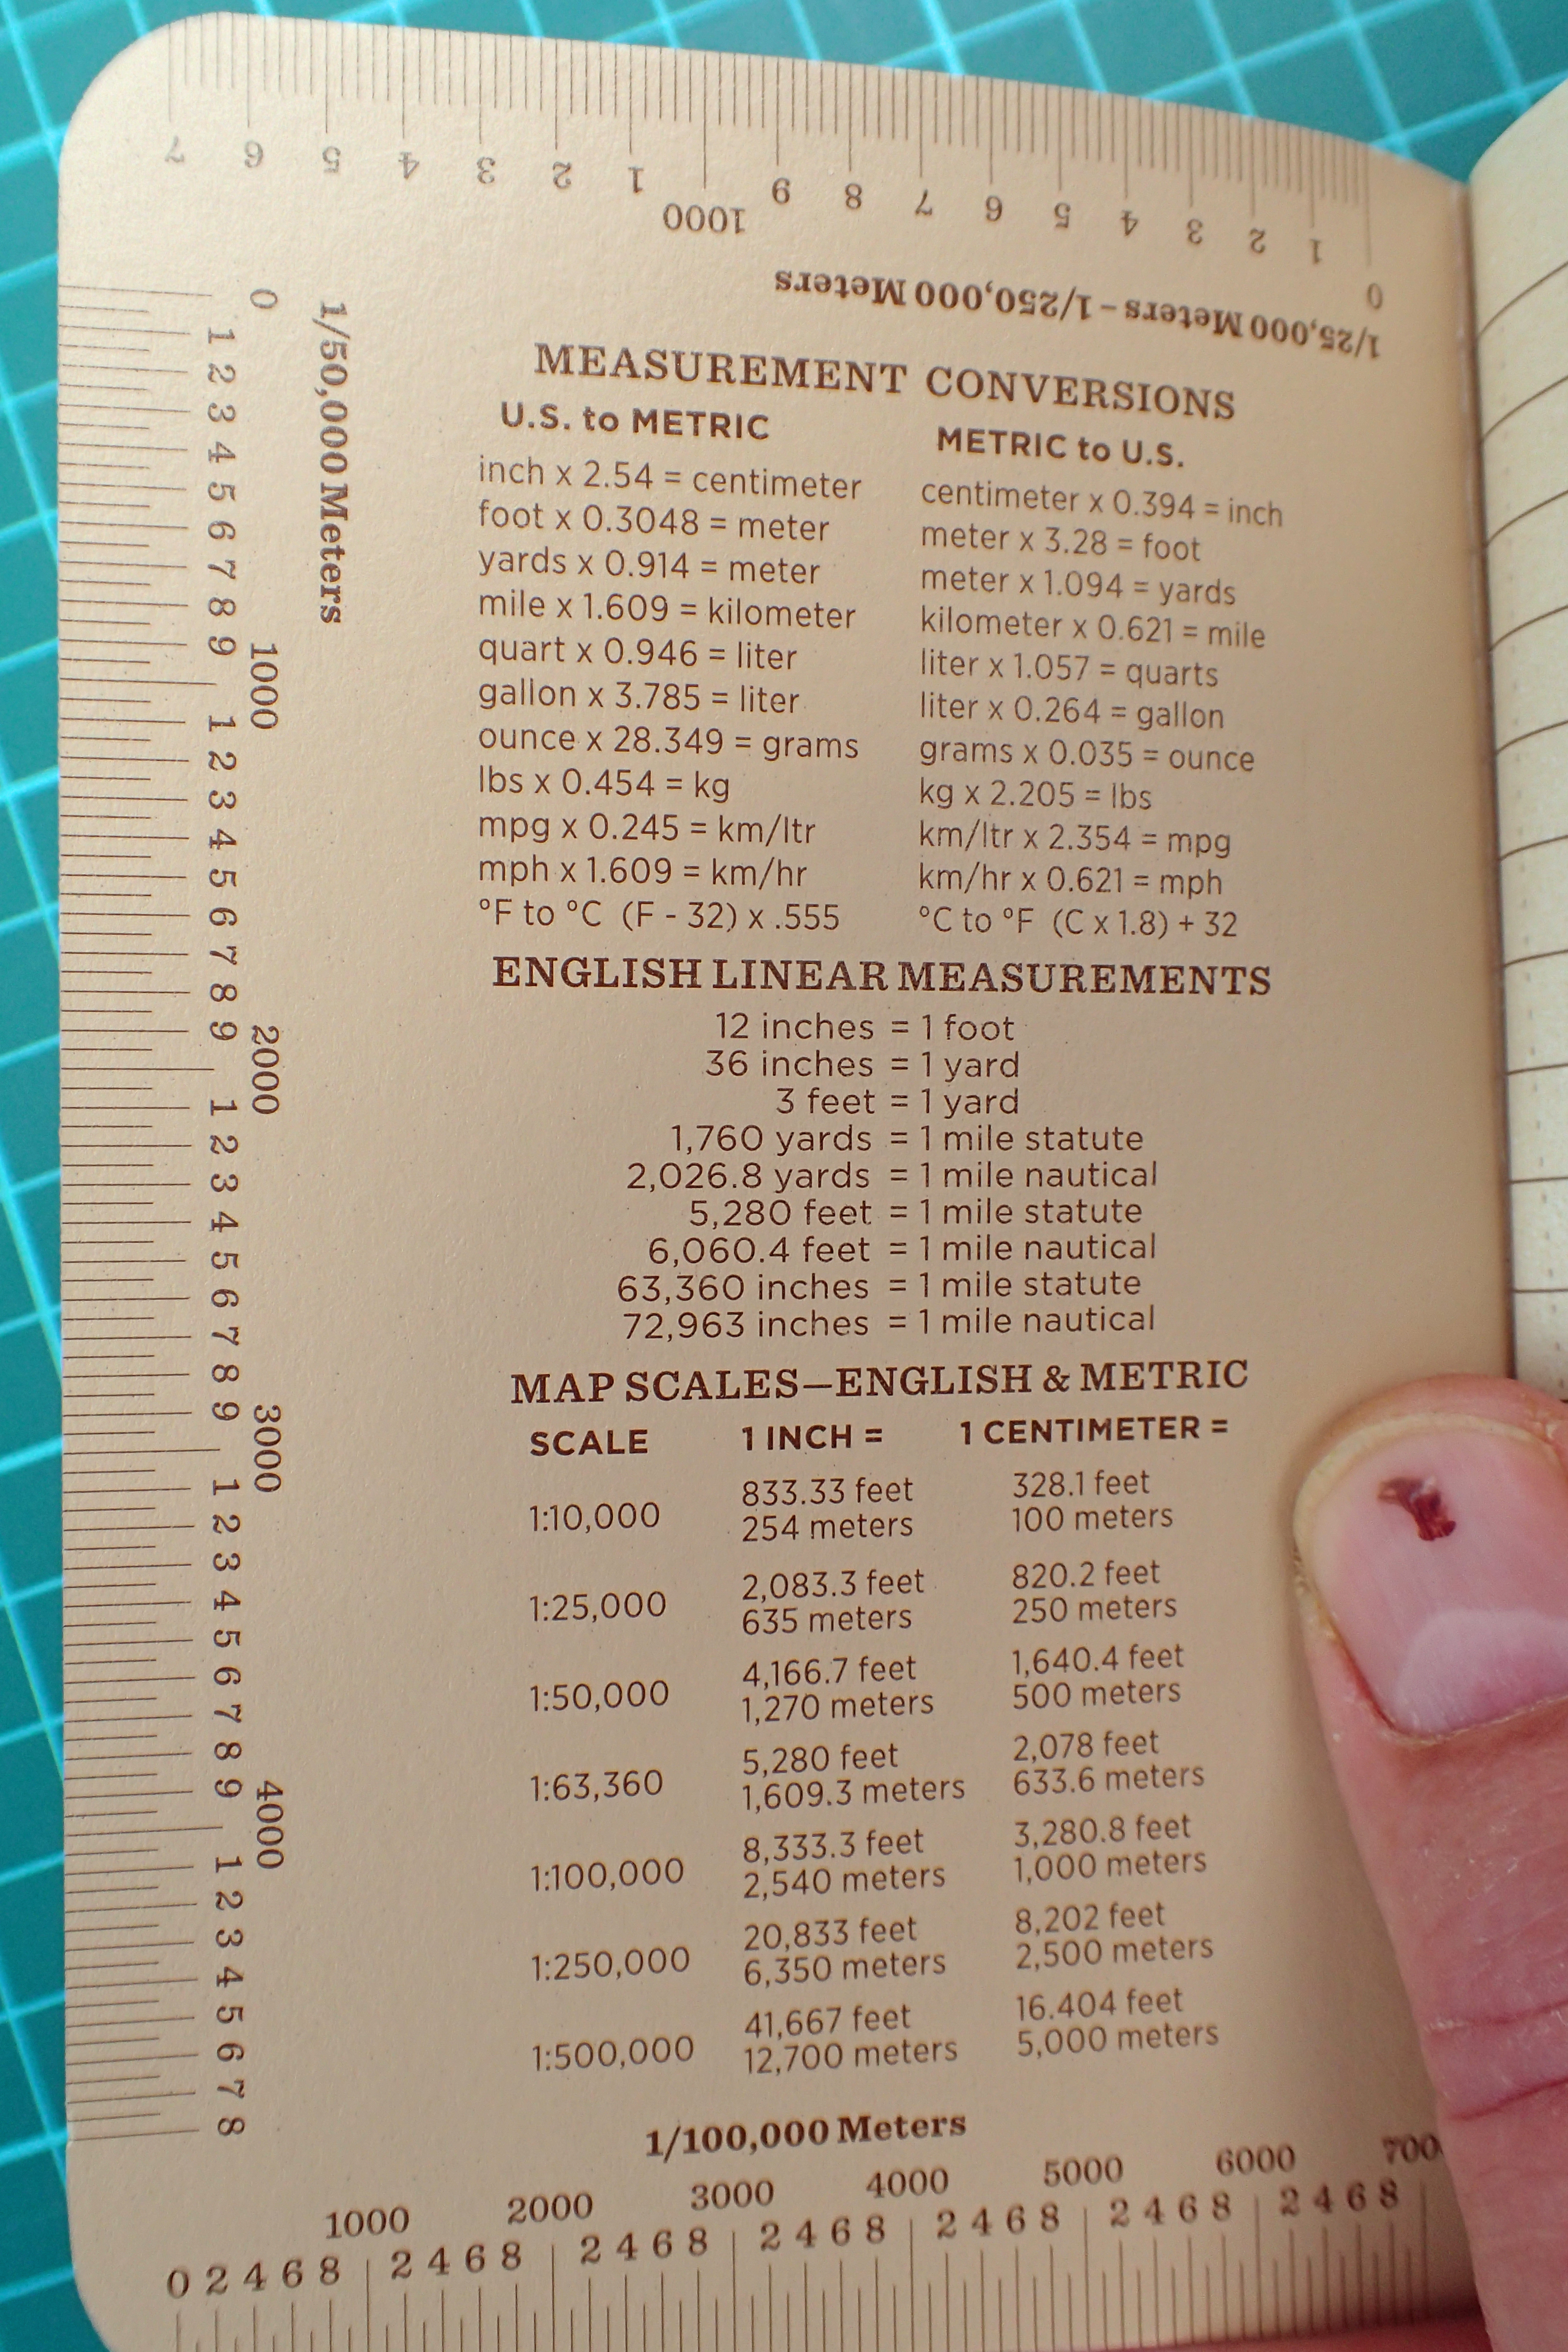 7 6 5 4 3 2 1 1000 9 8 7 6 5 4 3 2 1 0
1/25,000 Meters – 1/250,000 Meters
0 1 2 3 4 5 6 7 8 9 1000 1 2 3 4 5 6 7 8 9 2000 1 2 3 4 5 6 7 8 9 3000 1 2 3 4 5 6 7 8 9 4000 1 2 3 4 5 6 7 8
1/50,000 Meters
MEASUREMENT CONVERSIONS
U.S. to METRIC
inch x 2.54 = centimeter
foot x 0.3048 = meter
yards x 0.914 = meter
mile x 1.609 = kilometer
quart x 0.946 = liter
gallon x 3.785 = liter
ounce x 28.349 = grams
lbs x 0.454 = kg
mpg x 0.245 = km/ltr
mph x 1.609 = km/hr
°F to °C (F - 32) x .555
METRIC to U.S.
centimeter x 0.394 = inch
meter x 3.28 = foot
meter x 1.094 = yards
kilometer x 0.621 = mile
liter x 1.057 = quarts
liter x 0.264 = gallon
grams x 0.035 = ounce
kg x 2.205 = lbs
km/ltr x 2.354 = mpg
km/hr x 0.621 = mph
°C to °F (C x 1.8) + 32
ENGLISH LINEAR MEASUREMENTS
12 inches = 1 foot
36 inches = 1 yard
3 feet = 1 yard
1,760 yards = 1 mile statute
2,026.8 yards = 1 mile nautical
5,280 feet = 1 mile statute
6,060.4 feet = 1 mile nautical
63,360 inches = 1 mile statute
72,963 inches = 1 mile nautical
MAP SCALES—ENGLISH & METRIC
SCALE 1 INCH = 1 CENTIMETER =
1:10,000 833.33 feet 328.1 feet
254 meters 100 meters
1:25,000 2,083.3 feet 820.2 feet
635 meters 250 meters
1:50,000 4,166.7 feet 1,640.4 feet
1,270 meters 500 meters
1:63,360 5,280 feet 2,078 feet
1,609.3 meters 633.6 meters
1:100,000 8,333.3 feet 3,280.8 feet
2,540 meters 1,000 meters
1:250,000 20,833 feet 8,202 feet
6,350 meters 2,500 meters
1:500,000 41,667 feet 16.404 feet
12,700 meters 5,000 meters
1/100,000 Meters
1000 2000 3000 4000 5000 6000 700
0 2 4 6 8 2 4 6 8 2 4 6 8 2 4 6 8 2 4 6 8 2 4 6 8 2 4 6 8